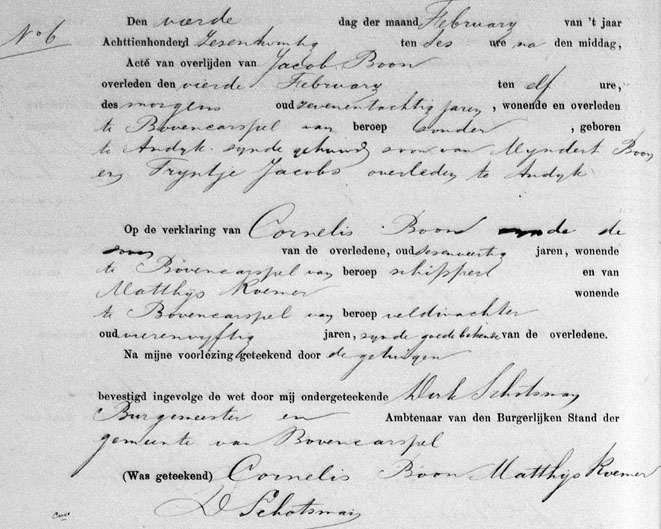 No 6
Den vierde dag der maand February van 't jaar
Achttienhonderd Zesentwintig ten Ses ure na den middag,
Acte van overlijden van Jacob Boon
overleden den vierde February ten elf ure,
des morgens oud zevenentachtig jaren, wonende en overleden
te Bovencarspel van beroep sonder, geboren
te Andyk synde gehuwd soon van Myndert Boon
en Tryntje Jacobs overleden te Andyk
Op de verklaring van Cornelis Boon de
soon van de overledene, oud jaren, wonende
te Bovencarspel van beroep schipper en van
Matthijs Kremer wonende
te Bovencarspel van beroep veldwachter
oud vierenvyftig jaren, synde goede bekende van de overledene.
Na mijne voorlezing geteekend door de getuigen
bevestigd ingevolge de wet door mij ondergeteekende Dirk Schotsman
Burgemeester en Ambtenaar van den Burgerlijken Stand der
gemeente van Bovencarspel
(Was geteekend) Cornelis Boon Matthijs Kremer
D Schotsman